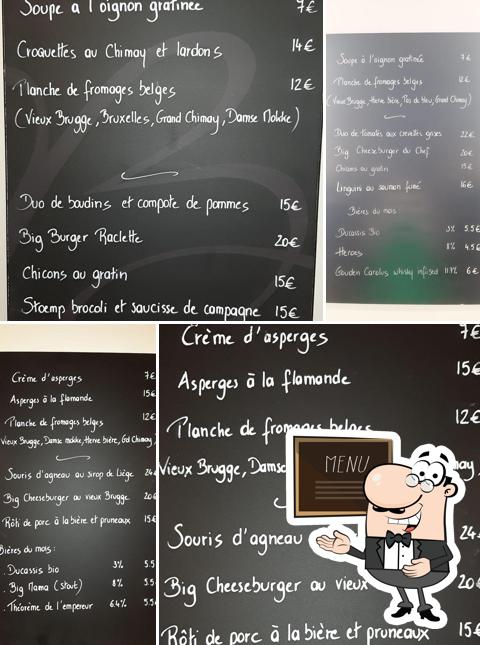 Soupe à l'oignon gratinée 7€
Croquettes au Chimay et lardons 14€
Planche de fromages belges 12€
(Vieux Brugge, Bruxelles, Grand Chimay, Damse Mokke)
Duo de boudins et compote de pommes 15€
Big Burger Raclette 20€
Chicons au gratin 15€
Stoemp brocoli et saucisse de campagne 15€
Soupe à l'oignon gratinée 7€
Planche de fromages belges 12€
(Vieux Brugge, Herve bière, Pas de bleu, Grand Chimay)
Duo de tomates aux crevettes grises 22€
Big Cheeseburger du Chef 20€
Chicons au gratin 15€
Linguini au saumon fumé 16€
Bières du mois:
Ducassis Bio 3% 5.5€
Heroes 8% 4.5€
Gouden Carolus whisky infused 11.7% 6€
Crème d'asperges 7€
Asperges à la flamande 15€
Planche de fromages belges 12€
Vieux Brugge, Damse mokke, Herve bière, Gd Chimay)
Souris d'agneau au sirop de Liège 24
Big Cheeseburger au vieux Brugge 20€
Rôti de porc à la bière et pruneaux 15€
Bières du mois:
. Ducassis bio 3% 5.5
. Big Mama (stout) 8% 5.5
. Théorème de l'empereur 6.4% 5.5
Crème d'asperges 7€
Asperges à la flamande 15€
Planche de fromages belges 12€
Vieux Brugge, Damse may)
MENU
Souris d'agneau 24.
Big Cheeseburger au vieux 20€
Rôti de porc à la bière et pruneaux 15€